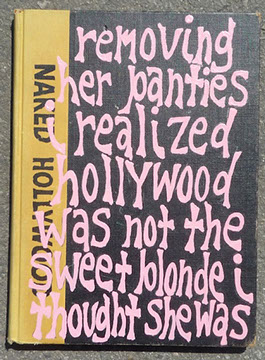 removing
her panties
i realized
hollywood
was not the
sweet blonde i
thought she was
NAKED HOLLYWOOD